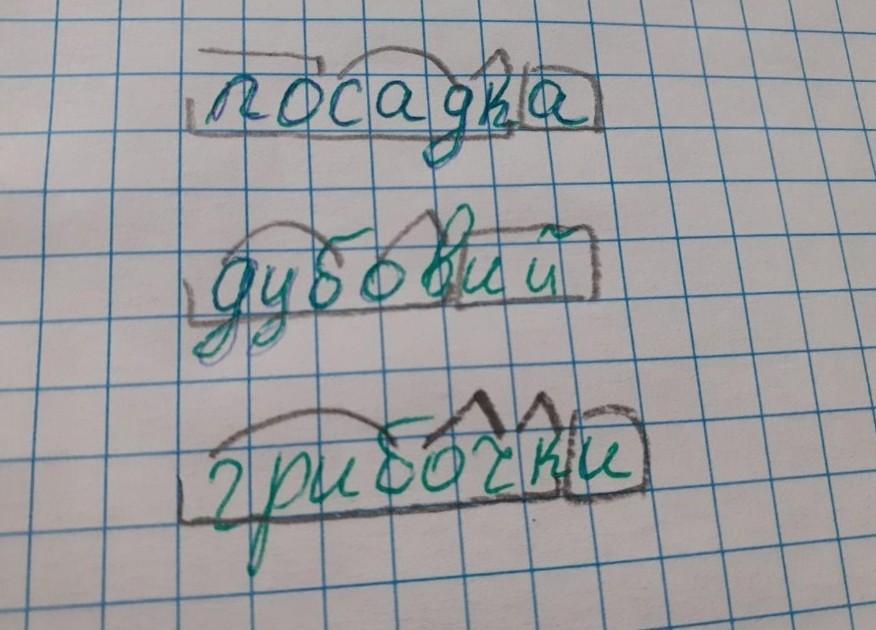 посадка
дубовий
грибочки